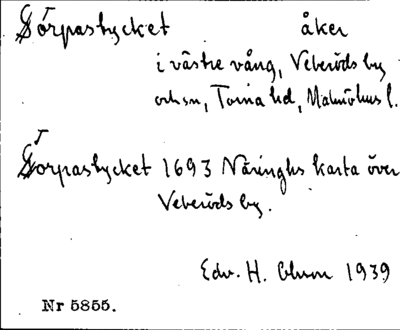 Torpastycket åker
i västre vång, Veberöds by
och sn, Torna hd, Malmöhus l.
Torpastycket 1693 Näringhs karta över
Veberöds by.
Edv. H. 1939
Nr 5855.